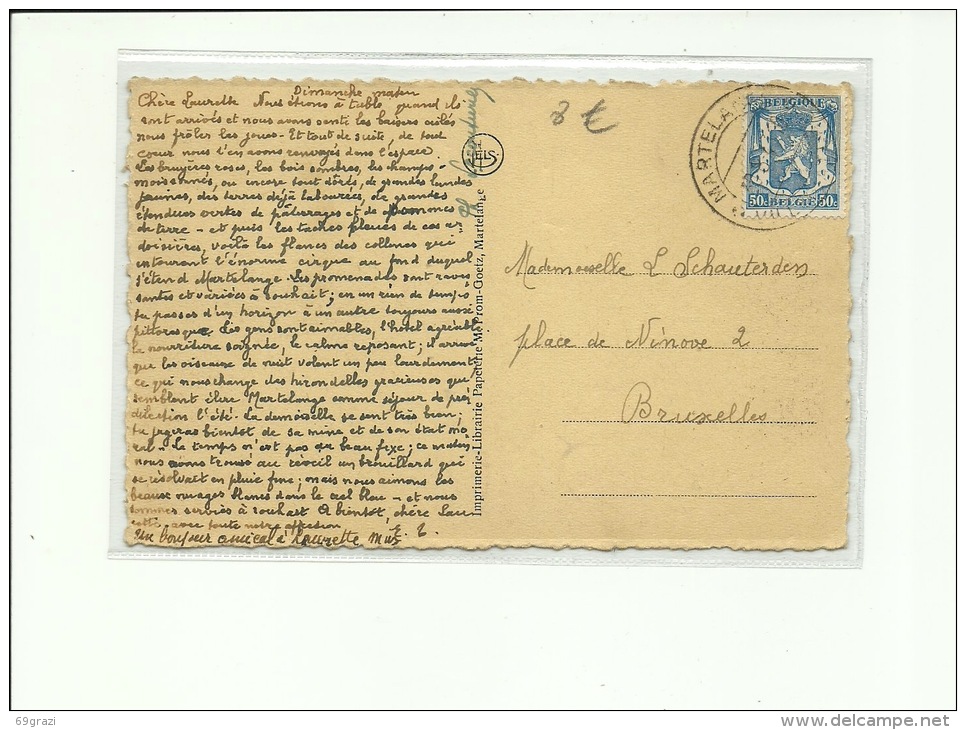 Dimanche matin
Chère Laurette Nous étions à table, quand ils
sont arrivés et nous avons senti les baisers ailés
nous frôler les joues - Et tout de suite, de tout
coeur nous t'en avons renvoyés dans l'espace
Les bruyères roses, les bois sombres, les champs
moissonnés, ou encore tout dorés, de grandes landes
jaunies, des terres déjà labourées, de grandes
étendues vertes de pâturages et de pommes
de terre - et puis les taches bleues de ces ar
doisières, voilà les flancs des collines qui
entourent l'énorme cirque au fond duquel
s'étend Martelange. Les promenades sont ravis
santes et variées à souhait; en un rien de temps
tu passes d'un horizon à un autre toujours aussi
pittoresque Les gens sont aimables, l'hôtel agréable
la nourriture soignée, le calme reposant; il arrive
que les oiseaux de nuit volent un peu lourdement
ce qui nous change des hirondelles gracieuses qui
semblent élire Martelange comme séjour de pré
dilection l'été. La demoiselle se sent très bien;
tu jugeras bientôt de sa mine et de son état mo
ral - le temps n'est pas au beau fixe; ce matin
nous avons trouvé au réveil un brouillard qui
se résolvait en pluie fine; mais nous aimons les
beaux nuages blancs dans le ciel bleu - et nous
sommes servies à souhait A bientôt, chère Lau
rette, avec toute notre affection
Un bonjour amical à Laurette
8 €
ELS
Imprimerie-Librairie Papeterie Me Prom-Goetz, Martelange
MARTELA
BELGIQUE
50c BELGIË 50c
Mademoiselle L Schauterden
place de Ninove 2
Bruxelles
69grazi
www.delcampe.net